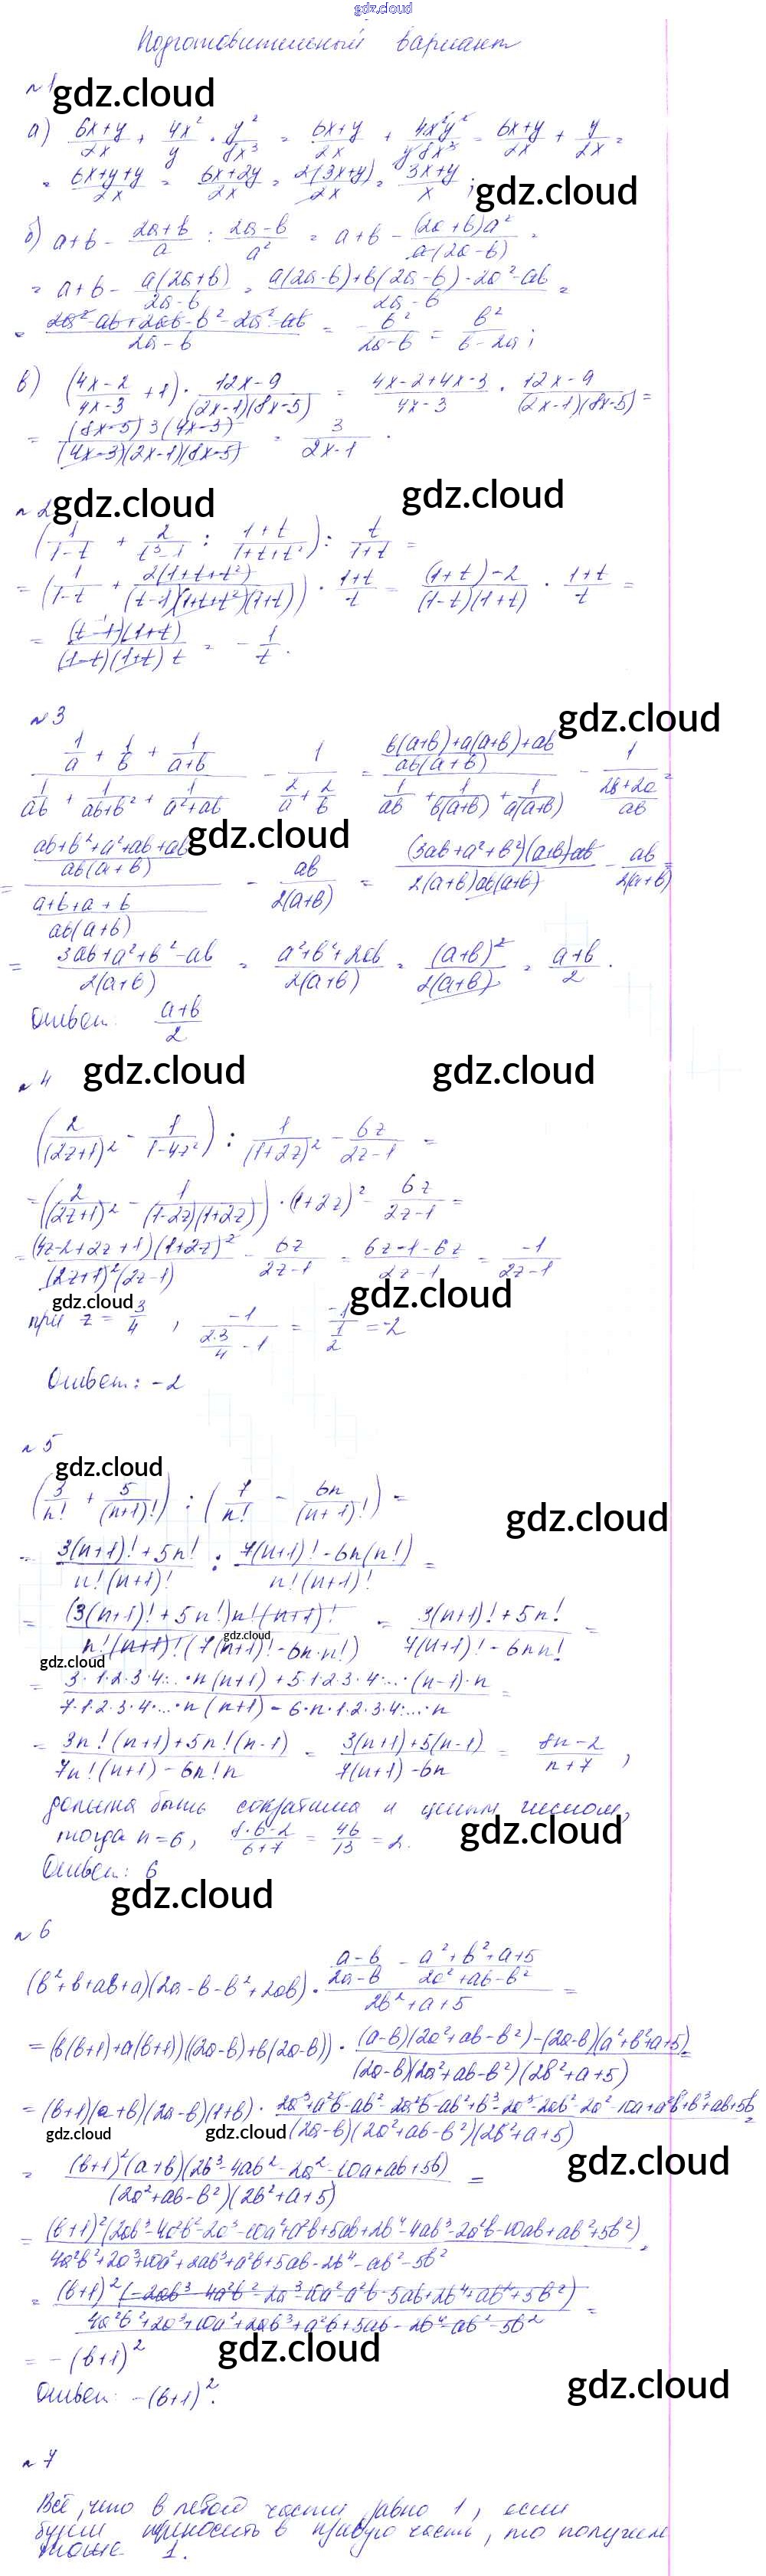 gdz.cloud
Подготовительный вариант
№1
gdz.cloud
а) (6x+y)/2x + 4x²/y · y²/8x³ = (6x+y)/2x + 4x²y²/y8x³ = (6x+y)/2x + y/2x =
= (6x+y+y)/2x = (6x+2y)/2x = 2(3x+y)/2x = (3x+y)/x ;
gdz.cloud
б) a+b - (2a+b)/a : (2a-b)/a² = a+b - (2a+b)a²/a(2a-b) =
= a+b - a(2a+b)/(2a-b) = (a(2a-b)+b(2a-b)-2a²-ab)/(2a-b) =
= (2a²-ab+2ab-b²-2a²-ab)/(2a-b) = - b²/(2a-b) = b²/(b-2a) ;
в) ((4x-2)/(4x-3) + 1) · (12x-9)/((2x-1)(8x-5)) = (4x-2+4x-3)/(4x-3) · (12x-9)/((2x-1)(8x-5)) =
= (8x-5)3(4x-3)/((4x-3)(2x-1)(8x-5)) = 3/(2x-1) .
№2
gdz.cloud
gdz.cloud
(1/(1-t) + 2/(t³-1) : (1+t)/(1+t+t²)) : t/(1+t) =
= (1/(1-t) + 2(1+t+t²)/((t-1)(1+t+t²)(1+t))) · (1+t)/t = ((1+t)-2)/((1-t)(1+t)) · (1+t)/t =
= (t-1)(1+t)/((1-t)(1+t)t) = - 1/t .
№3
gdz.cloud
(1/a + 1/b + 1/(a+b))/(1/ab + 1/(ab+b²) + 1/(a²+ab)) - 1/(2/a + 2/b) = ((b(a+b)+a(a+b)+ab)/ab(a+b))/(1/ab + 1/b(a+b) + 1/a(a+b)) - 1/((2b+2a)/ab) =
gdz.cloud
= ((ab+b²+a²+ab+ab)/ab(a+b))/((a+b+a+b)/ab(a+b)) - ab/2(a+b) = (3ab+a²+b²)(a+b)ab/(2(a+b)ab(a+b)) - ab/2(a+b) =
= (3ab+a²+b²-ab)/2(a+b) = (a²+b²+2ab)/2(a+b) = (a+b)²/2(a+b) = (a+b)/2 .
Ответ: (a+b)/2
№4
gdz.cloud
gdz.cloud
(2/(2z+1)² - 1/(1-4z²)) : 1/(1+2z)² - 6z/(2z-1) =
= (2/(2z+1)² - 1/((1-2z)(1+2z))) · (1+2z)² - 6z/(2z-1) =
= (4z-2+2z+1)(1+2z)²/((2z+1)²(2z-1)) - 6z/(2z-1) = (6z-1-6z)/(2z-1) = -1/(2z-1)
gdz.cloud
gdz.cloud
при z = 3/4 , -1/(2·3/4 - 1) = -1/(1/2) = -2
Ответ: -2
№5
gdz.cloud
(3/n! + 5/(n+1)!) : (7/n! - 6n/(n+1)!) =
gdz.cloud
= (3(n+1)!+5n!)/n!(n+1)! : (7(n+1)!-6n(n!))/n!(n+1)! =
= (3(n+1)!+5n!)n!(n+1)!/(n!(n+1)!(7(n+1)!-6n·n!)) = (3(n+1)!+5n!)/(7(n+1)!-6nn!) =
gdz.cloud
gdz.cloud
= (3·1·2·3·4·...·n(n+1)+5·1·2·3·4·...·(n-1)·n)/(7·1·2·3·4·...·n(n+1)-6·n·1·2·3·4·...·n) =
= (3n!(n+1)+5n!(n-1))/(7n!(n+1)-6n!n) = (3(n+1)+5(n-1))/(7(n+1)-6n) = (8n-2)/(n+7) ,
должна быть сократима и целым числом,
тогда n=6, (8·6-2)/(6+7) = 46/13 = 2.
gdz.cloud
Ответ: 6
gdz.cloud
№6
(b²+b+ab+a)(2a-b-b²+2ab) · ((a-b)/(2a-b) - (a²+b²+a+5)/(2a²+ab-b²))/(2b²+a+5) =
= (b(b+1)+a(b+1))((2a-b)+b(2a-b)) · ((a-b)(2a²+ab-b²)-(2a-b)(a²+b²+a+5))/((2a-b)(2a²+ab-b²)(2b²+a+5)) =
= (b+1)(a+b)(2a-b)(1+b) · (2a³+a²b-ab²-2a²b-ab²+b³-2a³-2ab²-2a²-10a+a²b+b³+ab+5b)/((2a-b)(2a²+ab-b²)(2b²+a+5)) =
gdz.cloud
gdz.cloud
gdz.cloud
= (b+1)²(a+b)(2b³-4ab²-2a²-10a+ab+5b)/((2a²+ab-b²)(2b²+a+5)) =
= (b+1)²(2ab³-4a²b²-2a³-10a²+a²b+5ab+2b⁴-4ab³-2a²b-10ab+ab²+5b²)/(4a²b²+2a³+10a²+2ab³+a²b+5ab-2b⁴-ab²-5b²) =
= (b+1)²(-2ab³-4a²b²-2a³-10a²-a²b-5ab+2b⁴+ab²+5b²)/(4a²b²+2a³+10a²+2ab³+a²b+5ab-2b⁴-ab²-5b²) =
= -(b+1)²
gdz.cloud
gdz.cloud
Ответ: -(b+1)².
№7
Всё, что в левой части равно 1, если
будем приносить в правую часть, то получим
тоже 1.
gdz.cloud
gdz.cloud